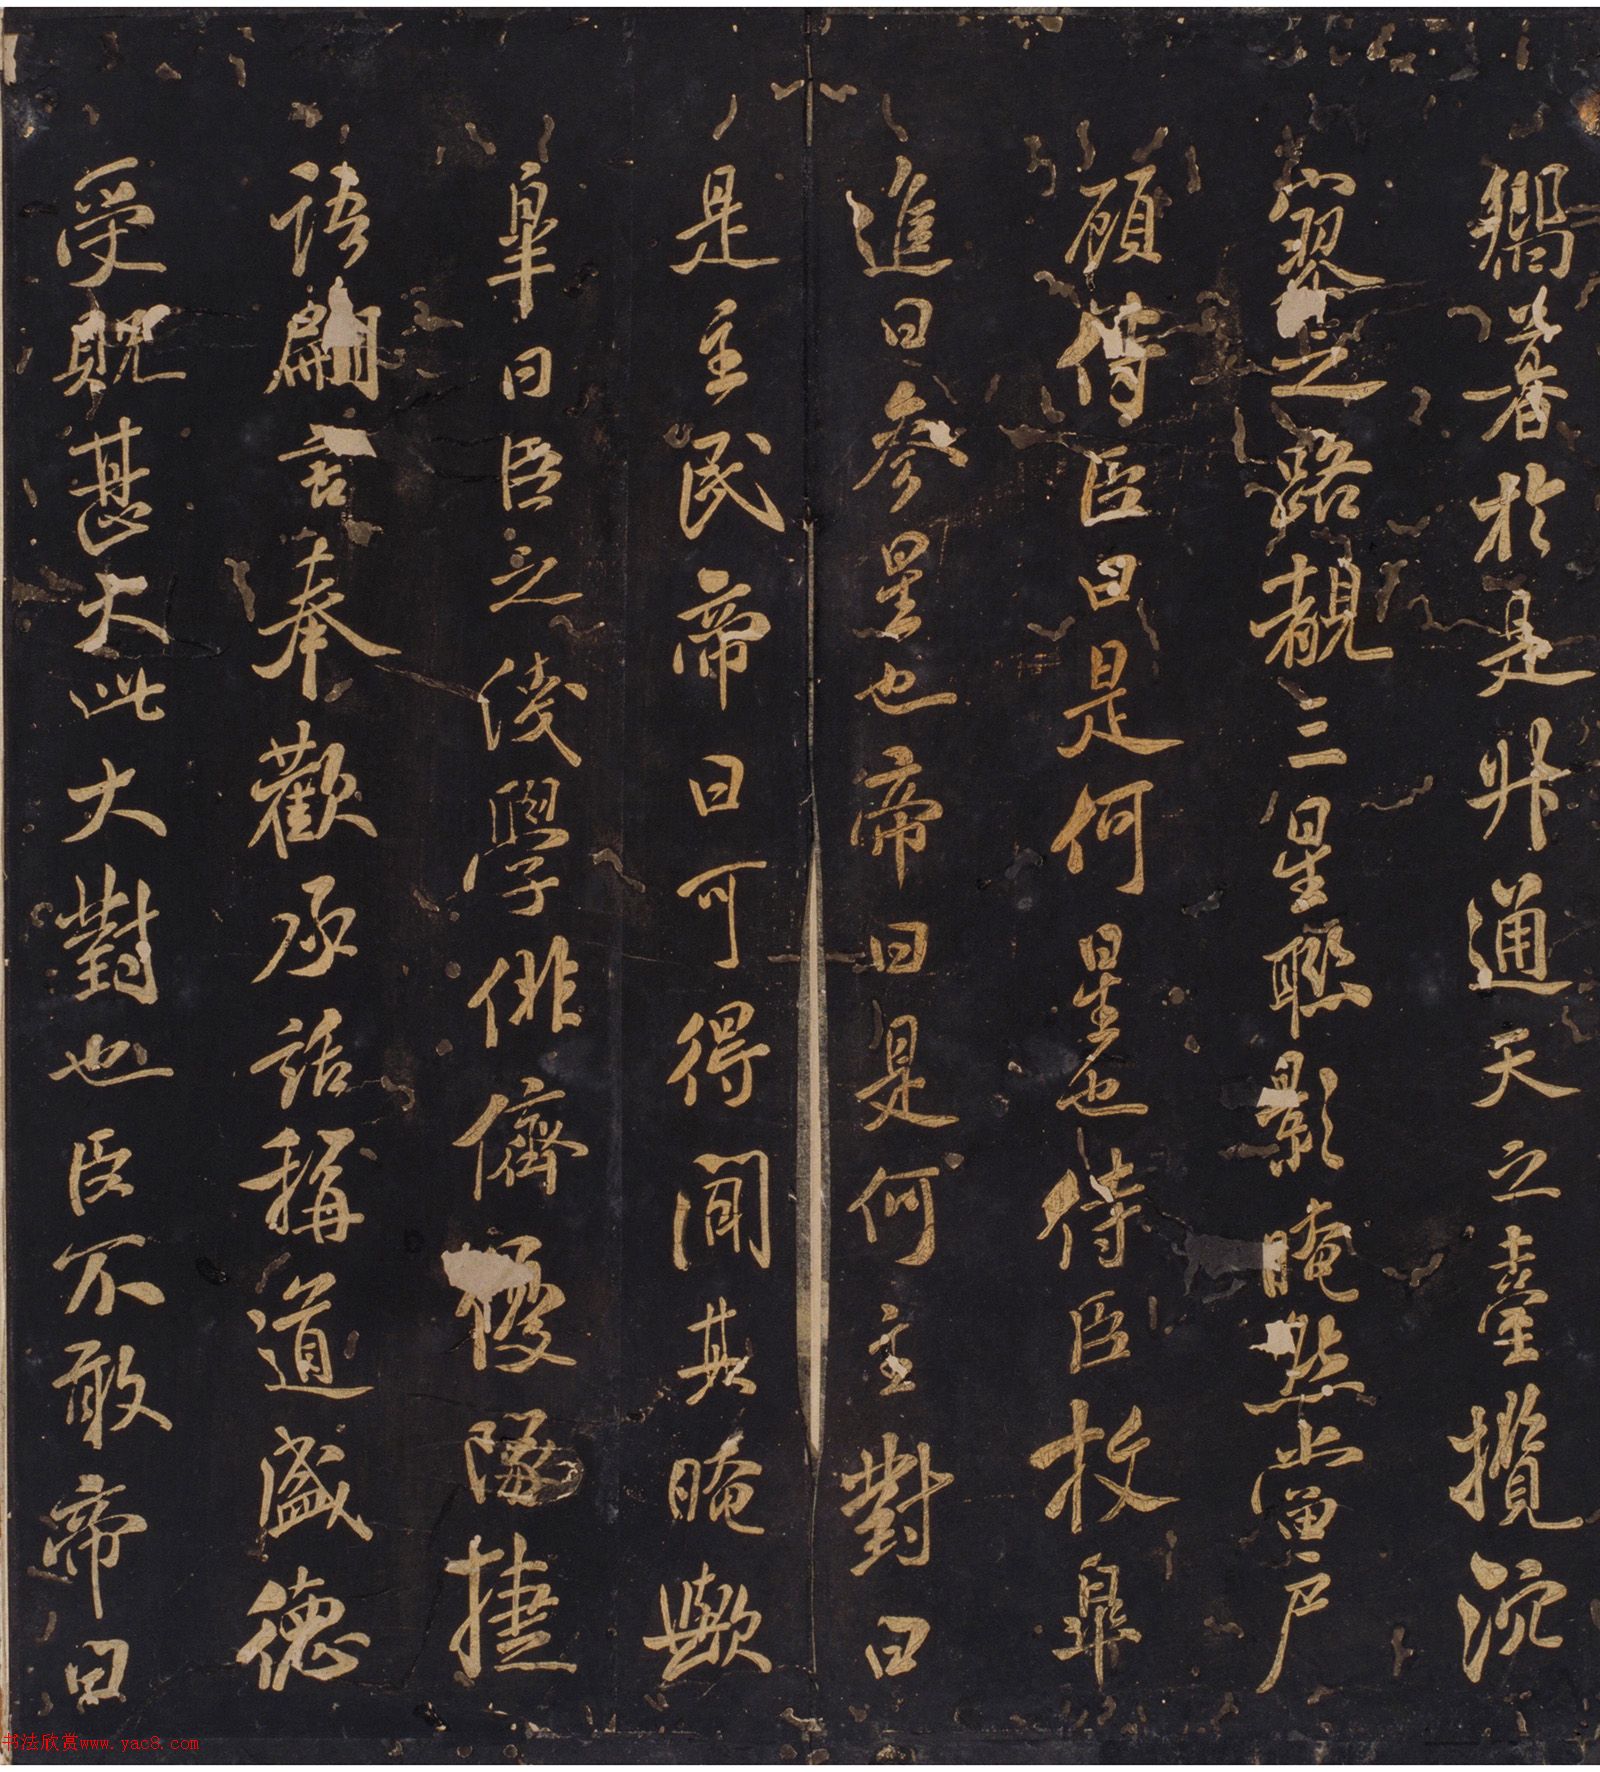 嚮著於是升通天之臺攬泬
寥之路覩三星聯影晻然當戶
顧侍臣曰是何星也侍臣枚皋
進曰參星也帝曰是何主對曰
是主民帝曰可得聞其晻歟
皋曰臣之俴學俳儕優隊捷
語翩言奉歡承話稱道盛德
受貺甚大此大對也臣不敢帝曰
书法欣赏www.yac8.com